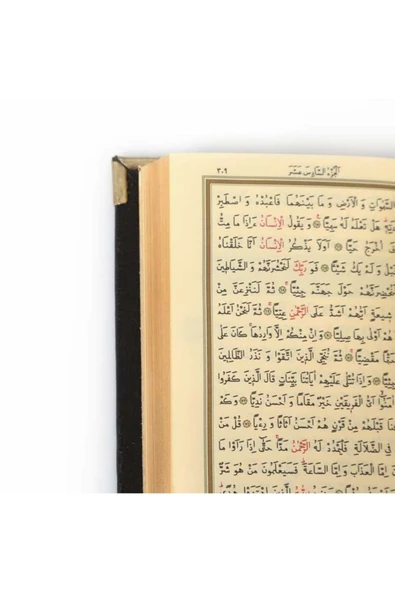 ٣٠٩ اَلْجُزْءُ السَّادِسَ عَشَرَ
السَّمٰوَاتِ وَالْاَرْضِ وَمَا بَيْنَهُمَا فَاعْبُدْهُ وَاصْطَبِرْ
هَلْ تَعْلَمُ لَهُ سَمِيًّا وَيَقُولُ الْاِنْسَانُ ءَاِذَا مَا مِتُّ
اُخْرَجُ حَيًّا اَوَلَا يَذْكُرُ الْاِنْسَانُ اَنَّا خَلَقْنَاهُ
قَبْلُ وَلَمْ يَكُ شَيْـًٔا فَوَرَبِّكَ لَنَحْشُرَنَّهُمْ وَالشَّيَاطِينَ
لَنُحْضِرَنَّهُمْ حَوْلَ جَهَنَّمَ جِثِيًّا ثُمَّ لَنَنْزِعَنَّ مِنْ
شِيعَةٍ اَيُّهُمْ اَشَدُّ عَلَى الرَّحْمٰنِ عِتِيًّا ثُمَّ لَنَحْنُ اَعْلَمُ
هُمْ اَوْلٰى بِهَا صِلِيًّا وَاِنْ مِنْكُمْ اِلَّا وَارِدُهَا كَانَ عَلٰى
حَتْمًا مَقْضِيًّا ثُمَّ نُنَجِّى الَّذِينَ اتَّقَوْا وَنَذَرُ الظَّالِمِينَ
وَاِذَا تُتْلٰى عَلَيْهِمْ اٰيَاتُنَا بَيِّنَاتٍ قَالَ الَّذِينَ كَفَرُوا
اٰمَنُوا اَىُّ الْفَرِيقَيْنِ خَيْرٌ مَقَامًا وَاَحْسَنُ نَدِيًّا وَكَمْ
قَبْلَهُمْ مِنْ قَرْنٍ هُمْ اَحْسَنُ اَثَاثًا وَرِءْيًا قُلْ مَنْ
فِى الضَّلَالَةِ فَلْيَمْدُدْ لَهُ الرَّحْمٰنُ مَدًّا حَتّٰى اِذَا رَاَوْا مَا
اِمَّا الْعَذَابَ وَاِمَّا السَّاعَةَ فَسَيَعْلَمُونَ مَنْ هُوَ شَرٌّ
الَّذِينَ اهْتَدَوْا هُدًى